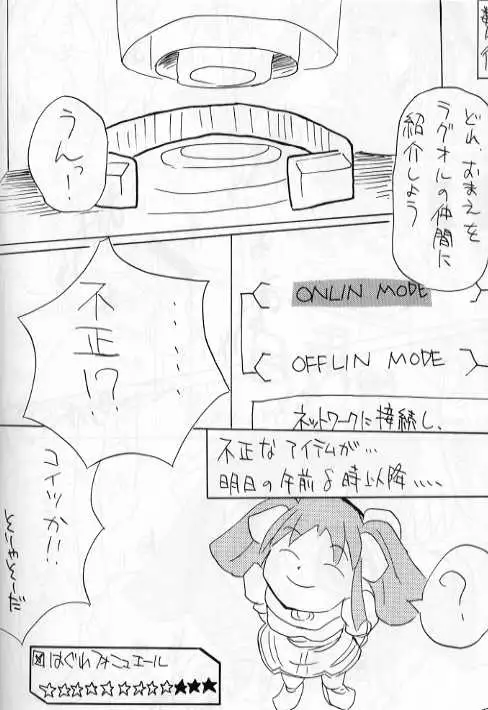 どれ、おまえを
ラグオルの仲間に
紹介しよう
うんっ!
ONLIN MODE
OFFLIN MODE
ネットワークに接続し、
不正なアイテムが…
明日の午前8時以降‥‥
‥‥‥
不正!?
コイツか!!
?
はぐれフォニュエール
☆☆☆☆☆☆☆☆☆★★★